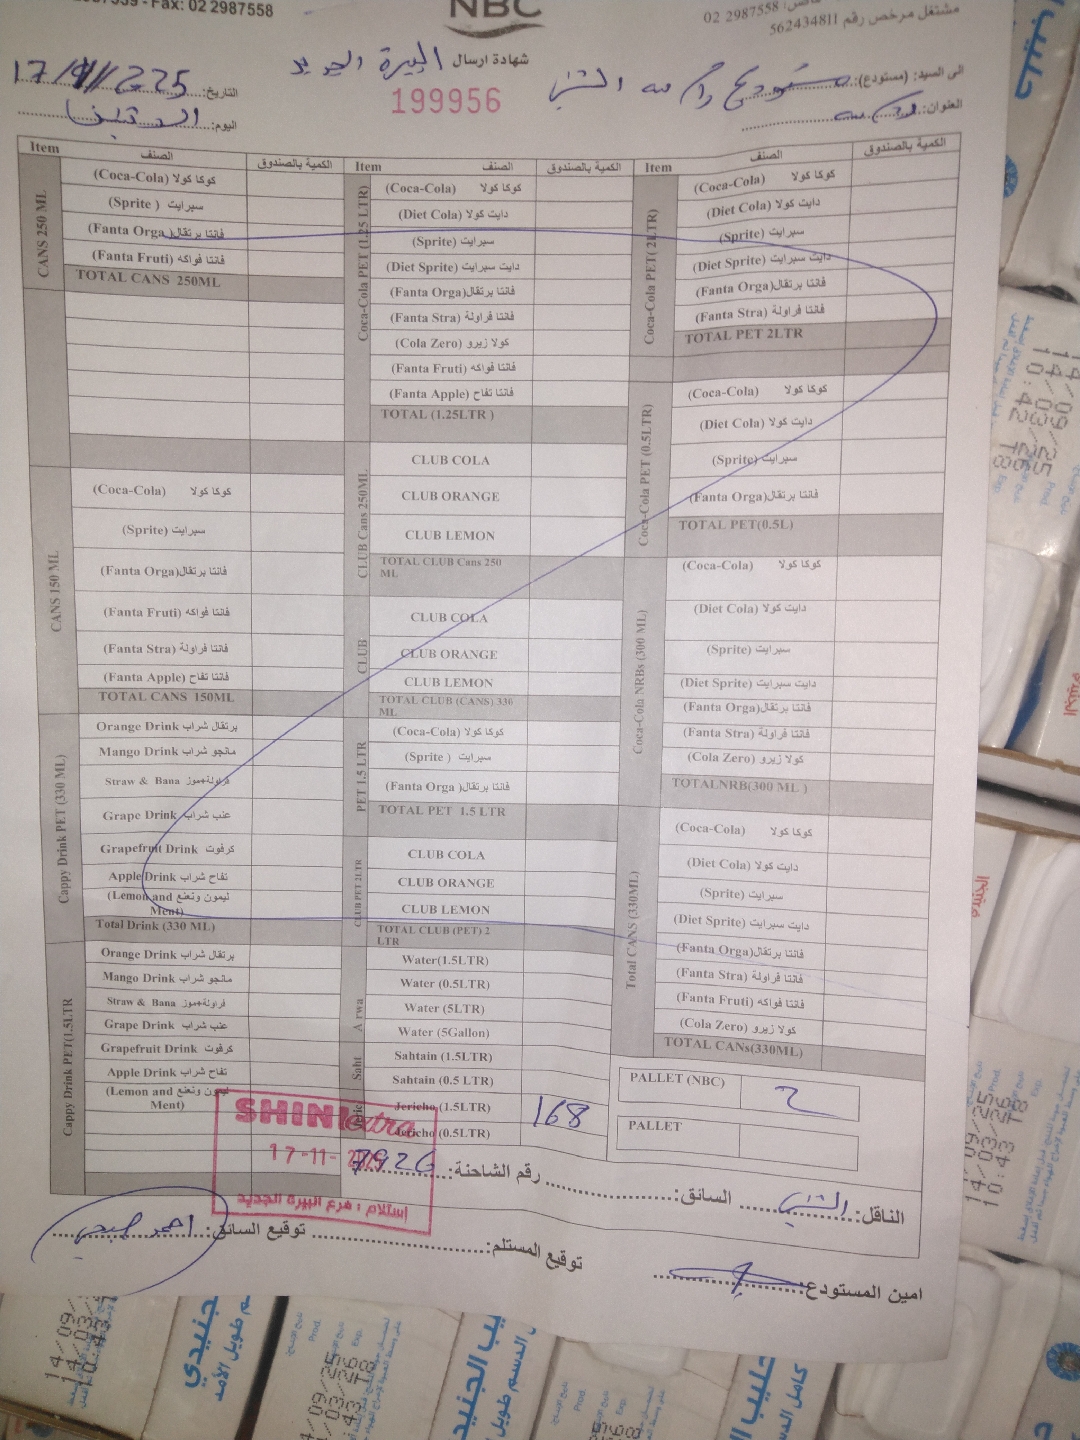 Fax: 02 2987558
NBC
02 2987558
مشتغل مرخص رقم 562434811
شهادة ارسال البيرة الجديد
199956
الى السيد: (مستودع):
العنوان:
التاريخ: 17/11/2025
اليوم:
Item الصنف الكمية بالصندوق
CANS 250 ML
(Coca-Cola) كوكا كولا
(Sprite ) سبرايت
(Fanta Orga )فانتا برتقال
(Fanta Fruti) فانتا فواكه
TOTAL CANS 250ML
CANS 150 ML
(Coca-Cola) كوكا كولا
(Sprite) سبرايت
(Fanta Orga)فانتا برتقال
(Fanta Fruti) فانتا فواكه
(Fanta Stra) فانتا فراولة
(Fanta Apple) فانتا تفاح
TOTAL CANS 150ML
Cappy Drink PET (330 ML)
Orange Drink برتقال شراب
Mango Drink مانجو شراب
Straw & Bana فراولة+موز
Grape Drink عنب شراب
Grapefruit Drink كرفوت
Apple Drink تفاح شراب
(Lemon and ليمون ونعنع
Ment)
Total Drink (330 ML)
Cappy Drink PET(1.5LTR
Orange Drink برتقال شراب
Mango Drink مانجو شراب
Straw & Bana فراولة+موز
Grape Drink عنب شراب
Grapefruit Drink كرفوت
Apple Drink تفاح شراب
(Lemon and ليمون ونعنع
Ment)
Item الصنف الكمية بالصندوق
Coca-Cola PET (1.25 LTR)
(Coca-Cola) كوكا كولا
(Diet Cola) دايت كولا
(Sprite) سبرايت
(Diet Sprite) دايت سبرايت
(Fanta Orga)فانتا برتقال
(Fanta Stra) فانتا فراولة
(Cola Zero) كولا زيرو
(Fanta Fruti) فانتا فواكه
(Fanta Apple) فانتا تفاح
TOTAL (1.25LTR )
CLUB Cans 250ML
CLUB COLA
CLUB ORANGE
CLUB LEMON
TOTAL CLUB Cans 250
ML
CLUB
CLUB COLA
CLUB ORANGE
CLUB LEMON
TOTAL CLUB (CANS) 330
ML
PET 1.5 LTR
(Coca-Cola) كوكا كولا
(Sprite ) سبرايت
(Fanta Orga )فانتا برتقال
TOTAL PET 1.5 LTR
CLUB PET 2LTR
CLUB COLA
CLUB ORANGE
CLUB LEMON
TOTAL CLUB (PET) 2
LTR
Arwa
Water(1.5LTR)
Water (0.5LTR)
Water (5LTR)
Water (5Gallon)
Saht
Sahtain (1.5LTR)
Sahtain (0.5 LTR)
Jericho (1.5LTR) 168
Jericho (0.5LTR)
Item الصنف الكمية بالصندوق
Coca-Cola PET( 2LTR)
(Coca-Cola) كوكا كولا
(Diet Cola) دايت كولا
(Sprite) سبرايت
(Diet Sprite) دايت سبرايت
(Fanta Orga)فانتا برتقال
(Fanta Stra) فانتا فراولة
TOTAL PET 2LTR
Coca-Cola PET (0.5LTR)
(Coca-Cola) كوكا كولا
(Diet Cola) دايت كولا
(Sprite) سبرايت
(Fanta Orga)فانتا برتقال
TOTAL PET(0.5L)
Coca-Cola NRBs (300 ML)
(Coca-Cola) كوكا كولا
(Diet Cola) دايت كولا
(Sprite) سبرايت
(Diet Sprite) دايت سبرايت
(Fanta Orga)فانتا برتقال
(Fanta Stra) فانتا فراولة
(Cola Zero) كولا زيرو
TOTALNRB(300 ML )
Total CANS (330ML)
(Coca-Cola) كوكا كولا
(Diet Cola) دايت كولا
(Sprite) سبرايت
(Diet Sprite) دايت سبرايت
(Fanta Orga)فانتا برتقال
(Fanta Stra) فانتا فراولة
(Fanta Fruti) فانتا فواكه
(Cola Zero) كولا زيرو
TOTAL CANs(330ML)
PALLET (NBC) 2
PALLET
SHINI extra
17-11-
إستلام : فرع البيرة الجديد
الناقل: السائق: رقم الشاحنة: 7926
امين المستودع: توقيع المستلم: توقيع السائق: